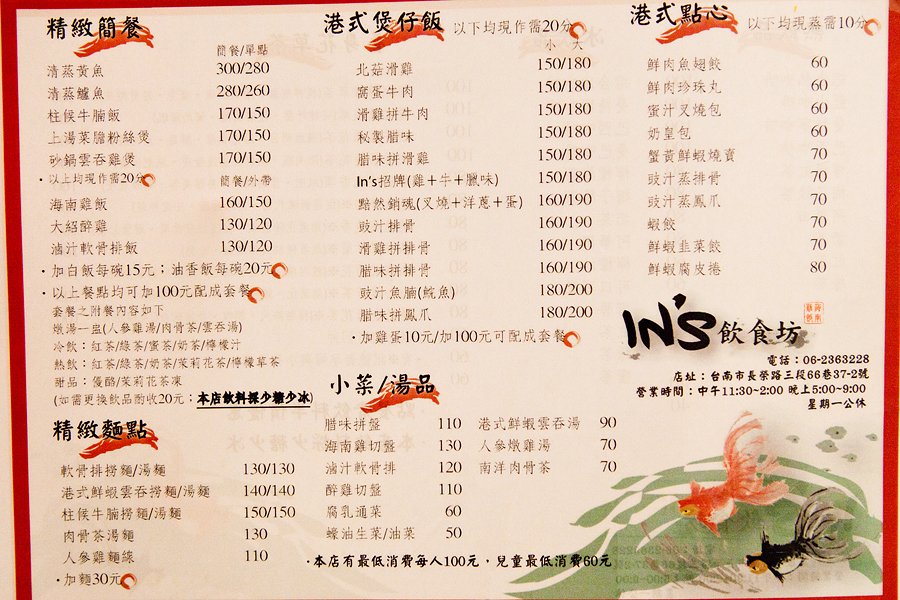 精緻簡餐
簡餐/單點
清蒸黃魚 300/280
清蒸鱸魚 280/260
柱候牛腩飯 170/150
上湯菜膽粉絲煲 170/150
砂鍋雲吞雞煲 170/150
·以上均現作需20分
簡餐/外帶
海南雞飯 160/150
大紹醉雞 130/120
滷汁軟骨排飯 130/120
·加白飯每碗15元；油香飯每碗20元
·以上餐點均可加100元配成套餐
套餐之附餐內容如下
燉湯一盅(人參雞湯/肉骨茶/雲吞湯)
冷飲：紅茶/綠茶/蜜茶/奶茶/檸檬汁
熱飲：紅茶/綠茶/奶茶/茉莉花茶/檸檬草茶
甜品：優酪/茉莉花茶凍
(如需更換飲品酌收20元；本店飲料採少糖少冰)
精緻麵點
軟骨排撈麵/湯麵 130/130
港式鮮蝦雲吞撈麵/湯麵 140/140
柱候牛腩撈麵/湯麵 150/150
肉骨茶湯麵 130
人參雞麵線 110
·加麵30元
港式煲仔飯 以下均現作需20分
小 大
北菇滑雞 150/180
窩蛋牛肉 150/180
滑雞拼牛肉 150/180
秘製腊味 150/180
腊味拼滑雞 150/180
In's招牌(雞+牛+臘味) 150/180
黯然銷魂(叉燒+洋蔥+蛋) 160/190
豉汁排骨 160/190
滑雞拼排骨 160/190
腊味拼排骨 160/190
豉汁魚腩(鯇魚) 180/200
腊味拼鳳爪 180/200
·加雞蛋10元/加100元可配成套餐
小菜/湯品
腊味拼盤 110
海南雞切盤 130
滷汁軟骨排 120
醉雞切盤 110
腐乳通菜 60
蠔油生菜/油菜 50
港式鮮蝦雲吞湯 90
人參燉雞湯 70
南洋肉骨茶 70
·本店有最低消費每人100元，兒童最低消費60元
港式點心 以下均現蒸需10分
鮮肉魚翅餃 60
鮮肉珍珠丸 60
蜜汁叉燒包 60
奶皇包 60
蟹黃鮮蝦燒賣 70
豉汁蒸排骨 70
豉汁蒸鳳爪 70
蝦餃 70
鮮蝦韭菜餃 70
鮮蝦腐皮捲 80
IN'S飲食坊
電話：06-2363228
店址：台南市長榮路三段66巷37-2號
營業時間：中午11:30~2:00 晚上5:00~9:00
星期一公休